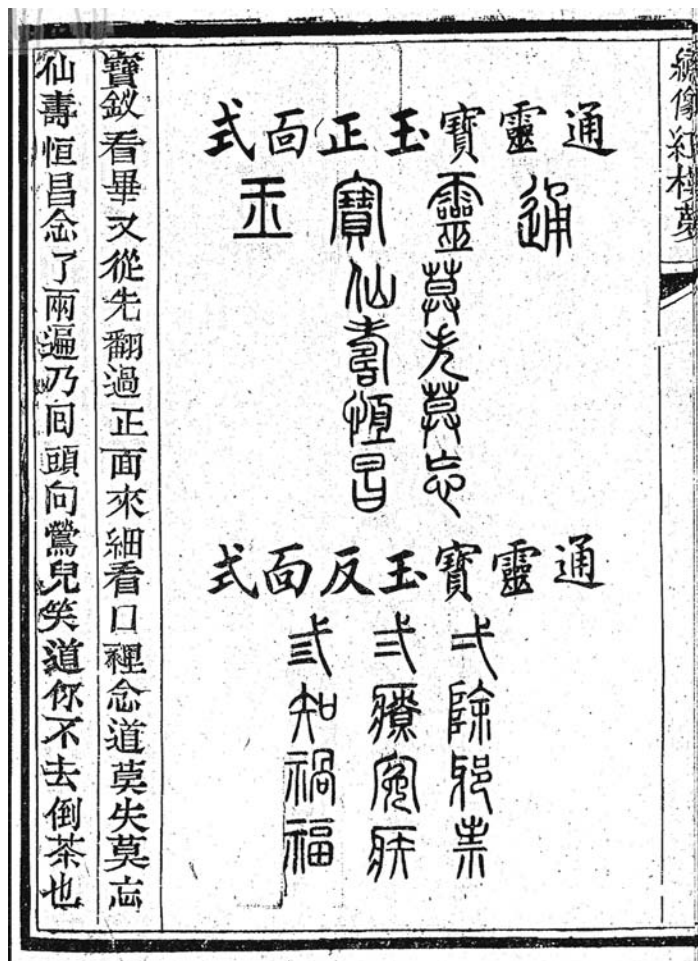 繡像紅樓夢
通靈寶玉正面式
通
靈莫失莫忘
寶仙壽恒昌
玉
通靈寶玉反面式
弌除邪祟
弍療冤疾
弎知禍福
寶釵看畢又從先翻過正面來細看口裡念道莫失莫忘
仙壽恒昌念了兩遍乃囘頭向鶯兒笑道你不去倒茶也